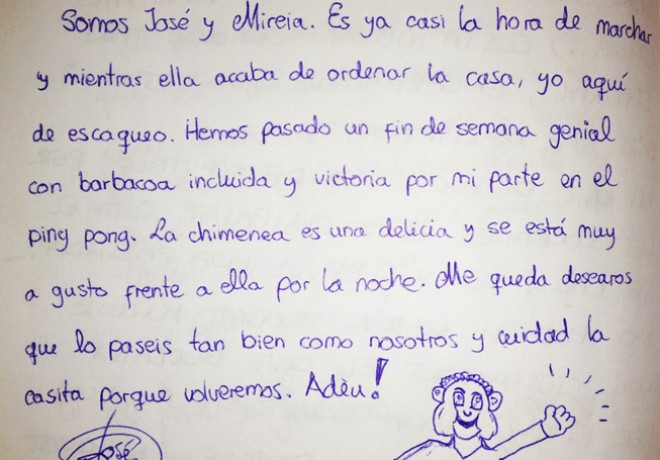 Somos José y Mireia. Es ya casi la hora de marchar
y mientras ella acaba de ordenar la casa, yo aquí
de escaqueo. Hemos pasado un fin de semana genial
con barbacoa incluida y victoria por mi parte en el
ping pong. La chimenea es una delicia y se está muy
a gusto frente a ella por la noche. Me queda desearos
que lo paseis tan bien como nosotros y cuidad la
casita porque volveremos. Adèu!
José